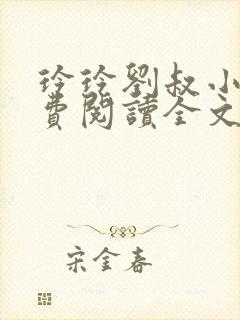 玲玲劉叔小
費閱讀全文
宋金春